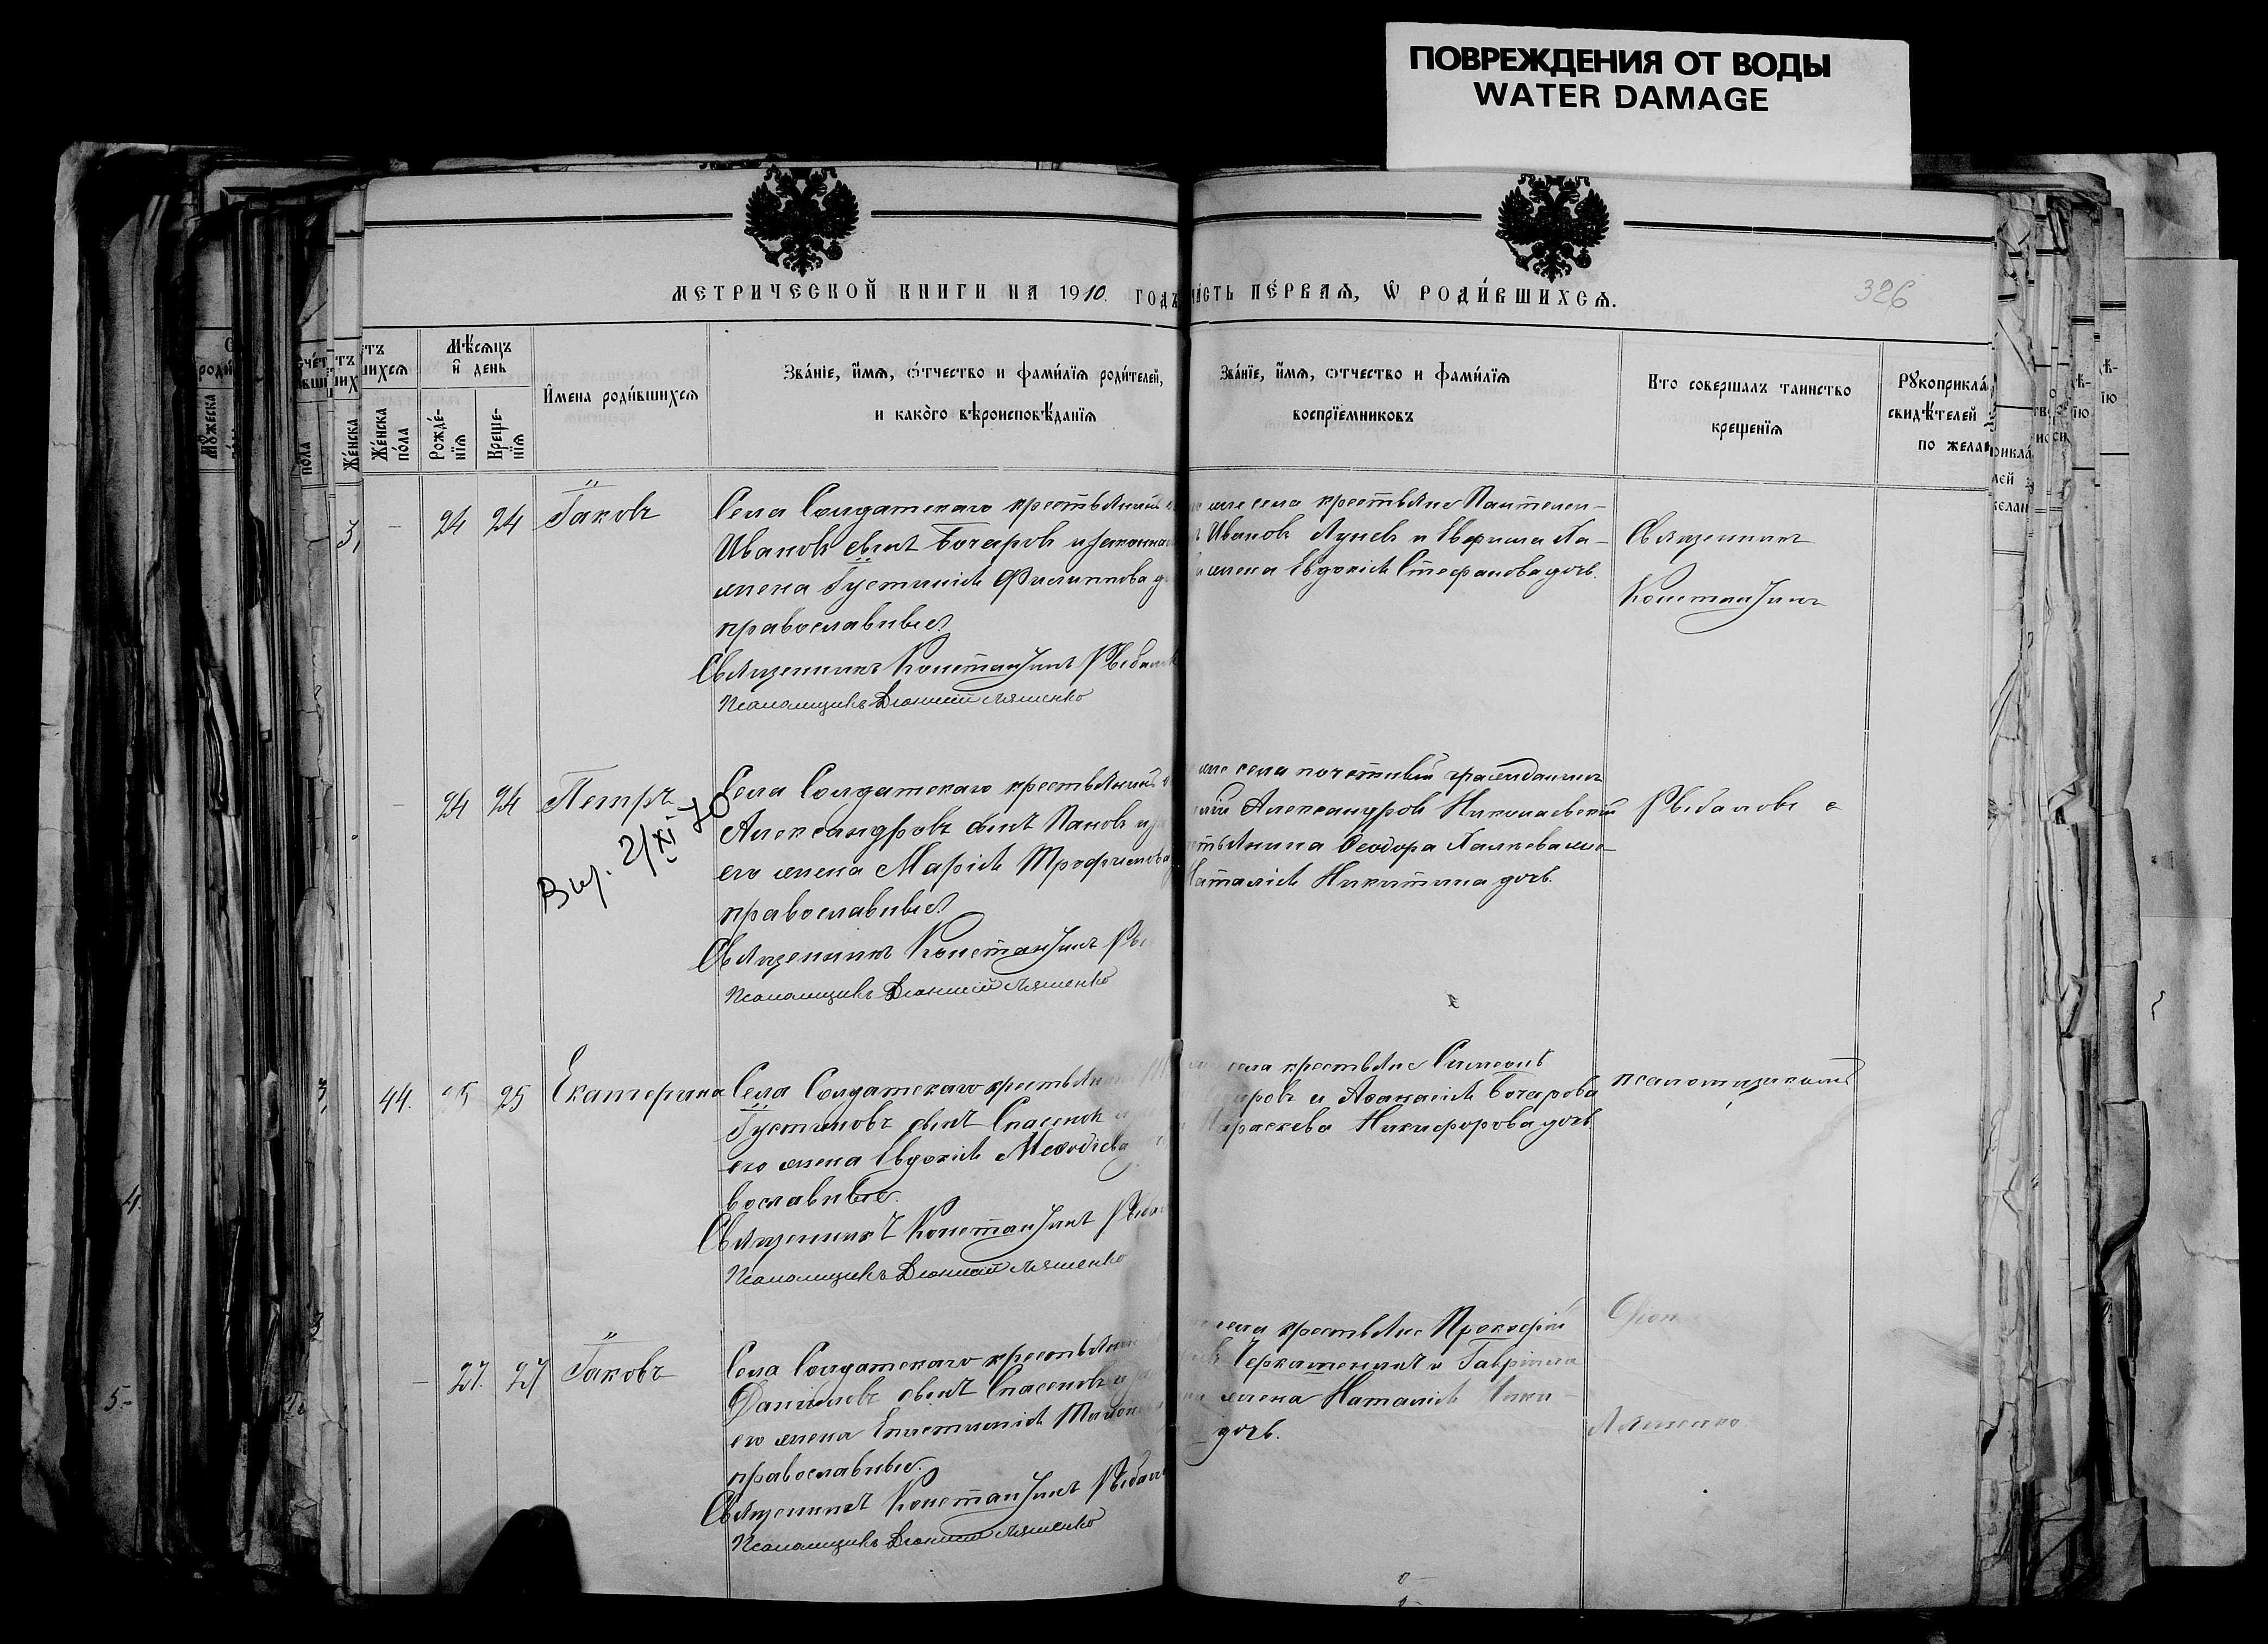 ПОВРЕЖДЕНИЯ ОТ ВОДЫ
WATER DAMAGE
МЕТРИЧЕСКОЙ КНИГИ НА 1910. ГОДЪ
ЧАСТЬ ПЕ́РВАЯ, Ѡ РОДИ́ВШИХСЯ.
326
Же́нска по́ла
Мѣ́сяцъ и де́нь
Рожде́нїя
Креще́нїя
И҆мена роди́вшихся
Зва́нїе, и҆́мя, ѻ҆́тчество и фами́лїя роди́телей,
и како́го вѣроисповѣ́данїя
Зва́нїе, и҆́мя, ѻ҆́тчество и фами́лїя
воспрїе́мниковъ
Кто соверша́лъ таинство
креще́нїя
Рꙋкоприкла́
свидѣ́телей
по жела
24 24 Іаковъ
Села Солдатскаго крестьянинъ
Ивановъ сынъ Бочаровъ и законная
жена Іустинія Филиппова
православные
Священникъ Константинъ Рыбал
Псаломщикъ Діонисій Ляшенко
села крестьяне Пантелеи-
Ивановъ Лунев и
жена Евдокія Стефанова дочь.
Священникъ
Константинъ
24 24 Петръ
2/XI 70
Села Солдатскаго крестьянинъ
Александровъ сынъ Пановъ и
его жена Марія Трофимова
православные
Священникъ Константинъ Ры
Псаломщикъ Діонисій Ляшенко
села почетный гражданинъ
Александров Николаевскій
крестьянина Ѳеодора
Наталія Никитина дочь.
Рыбаловъ с
44. 25 25 Екатерина
Села Солдатскаго крестьянинъ
Іустиновъ сынъ Спасенов
его жена Евдокія Меѳодіева
вославные.
Священникъ Константинъ Рыбал
Псаломщикъ Діонисій Ляшенко
села крестьяне Симеонъ
и Аѳанасія Бочарова
Параскева Никифорова дочь
псаломщикомъ
27. 27 Іаковъ
Села Солдатскаго крестьянинъ
Даниловъ сынъ Спасеновъ
его жена Епистимія
православные.
Священникъ Константинъ Рыбал
Псаломщикъ Діонисій Ляшенко
села крестьяне Прокофій
Черкашенинъ и Гавріила
жена Наталія
дочь.
Діон
Ляшенко.